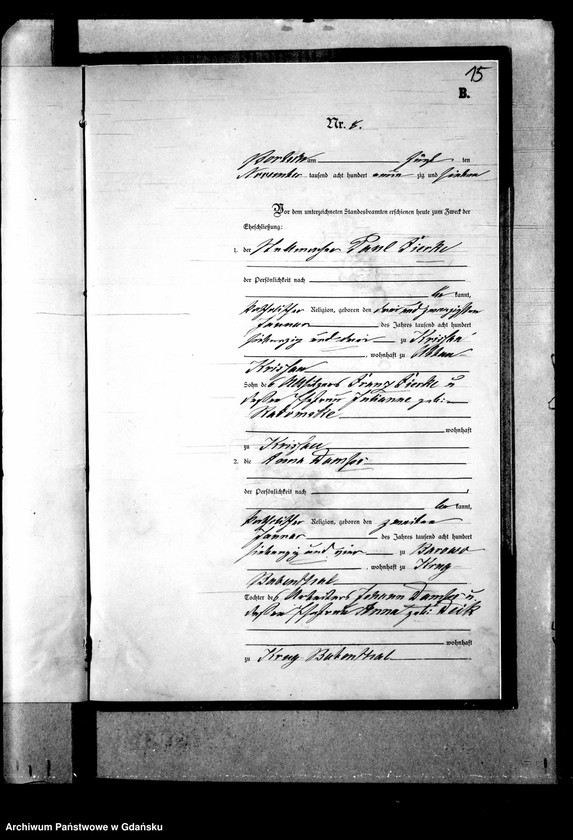 15
B.
Nr. 8.
am fünf ten
November tausend acht hundert neun zig und sieben
Vor dem unterzeichneten Standesbeamten erschienen heute zum Zweck der
Eheschließung:
1. der Paul
der Persönlichkeit nach
be kannt,
katholischer Religion, geboren den drei und zwanzigsten
Januar des Jahres tausend acht hundert
siebenzig und drei zu Krissau
, wohnhaft zu
Krissau
Sohn des Altsitzers Franz u
dessen Ehefrau Julianne geb:
wohnhaft
zu Krissau
2. die Anna
der Persönlichkeit nach
be kannt,
katholischer Religion, geboren den zweiten
Januar des Jahres tausend acht hundert
siebenzig und vier zu Borowo
, wohnhaft zu Krug
Babenthal
Tochter des Arbeiters Johann u.
dessen Ehefrau Anna geb:
wohnhaft
zu Krug Babenthal
Archiwum Państwowe w Gdańsku